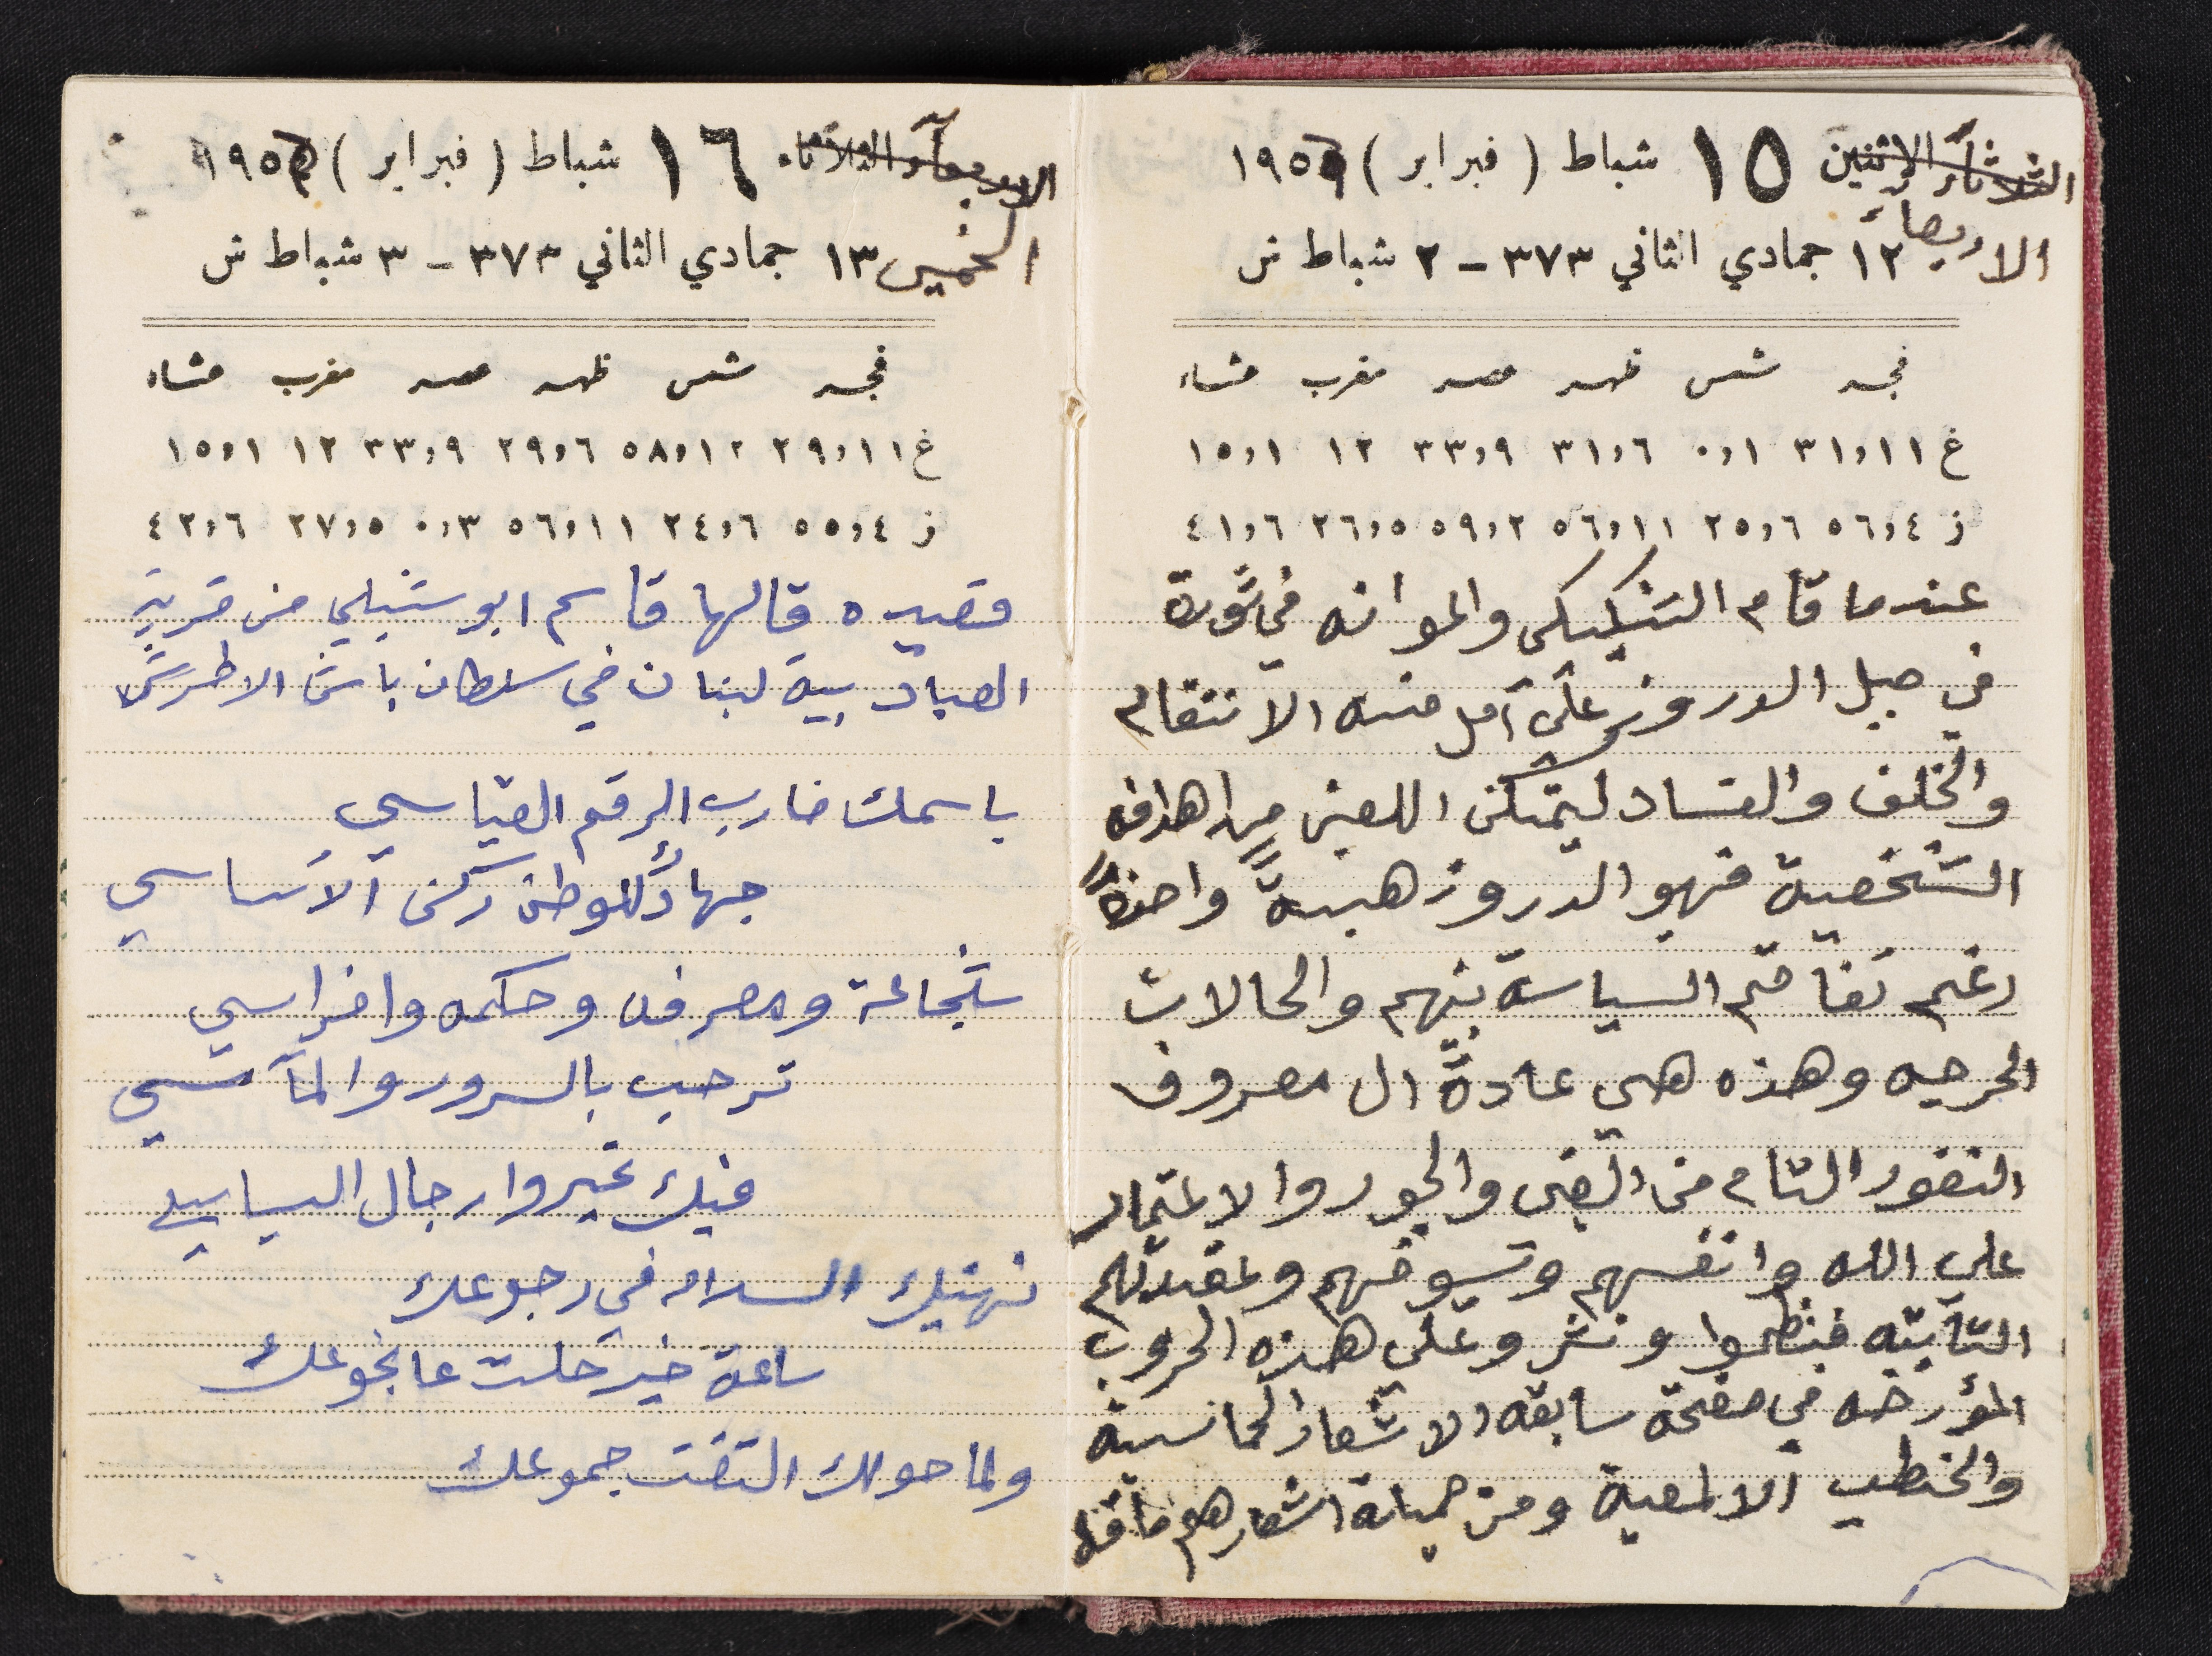 الثلاثآء الاثنين ١٥ شباط ( فبراير ) ١٩٥٦
الاربعاء ١٢ جمادي الثاني ٣٧٣ - ٢ شباط ش
فجر شمس ظهر عصر مغرب عشاء
غ ٣١,١١ ٠,١ ٣١,٦ ٣٣,٩ ١٢ ١٥,١
ز ٥٦,٤ ٢٥,٦ ٥٦,١١ ٥٩,٢ ٢٦,٥ ٤١,٦
عندما قام الشيكلي واعوانه في ثورة
في جبل الدروز على آمل منه الانتقام
والخلف والفساد ليتمكن اللعين من اهدافه
الشخصية فهبو الدروز هبةً واحدةً
رغم تفاقم السياسة بينهم والحالات
الحرجه وهذه هي عادة ال معروف
النفور التام من البغي والجور والاعتماد
على الله وانفسهم وسيوفهم وعقيدتهم
الثابته فنظموا ونثروا على هذه الحروب
المؤرخه في صفحة سابقه الاشعار الحماسية
والخطب الالمعية ومن جملة اشعارهم ما قاله
الاربعآء الثلاثاء ١٦ شباط ( فبراير ) ١٩٥٦
الخميس ١٣ جمادي الثاني ٣٧٣ - ٣ شباط ش
فجر شمس ظهر عصر مغرب عشاء
غ ٢٩,١١ ٥٨,١٢ ٢٩,٦ ٣٣,٩ ١٢ ١٥,١
ز ٥٥,٤ ٢٤,٦ ٥٦,١١ ٠,٣ ٢٧,٥ ٤٢,٦
قصيده قالها قاسم ابو شبلي من قرية
العبادبية لبنان في سلطان باشا الاطرش
باسمك ضارب الرقم القياسي
جهادًا للوطن ركن الاساسي
شجاعة ومعرفه وحكمه وافراسي
ترحب بالسرور والمآسي
فيك غيروا رجال السياسي
نهنيك السلامه في رجوعك
ساعة خير حلت عا نجوعك
ولما حولك التفت جموعك